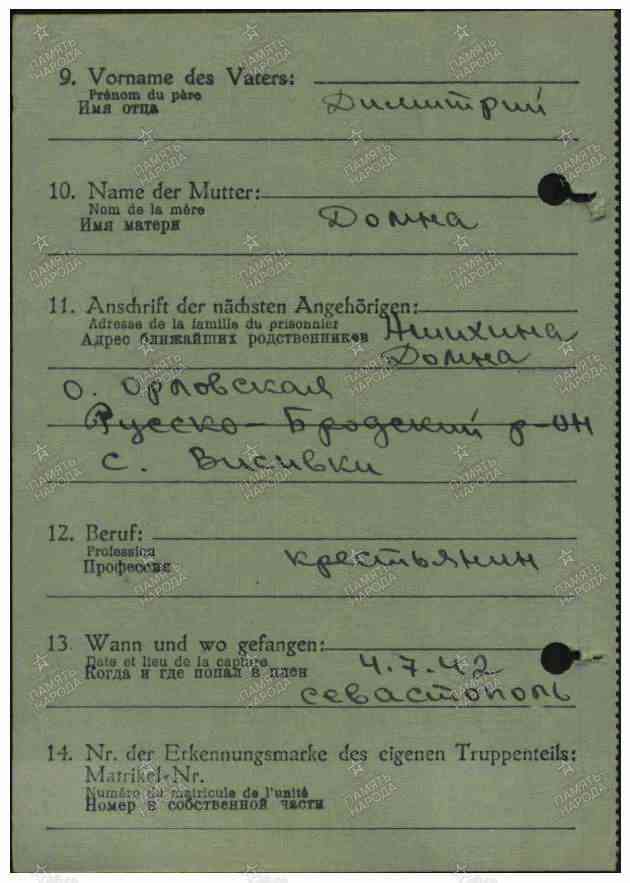 9. Vorname des Vaters:
Prénom du père
Имя отца
Димитрий
10. Name der Mutter:
Nom de la mère
Имя матери
Домна
11. Anschrift der nächsten Angehörigen:
Adresse de la famille du prisonnier
Адрес ближайших родственников
Анихина
Домна
о. Орловская
Русско-Бродский р-он
с. Висивки
12. Beruf:
Profession
Профессия
крестьянин
13. Wann und wo gefangen:
Date et lieu de la capture
Когда и где попал в плен
4.7.42
севастополь
14. Nr. der Erkennungsmarke des eigenen Truppenteils:
Matrikel-Nr.
Numéro du matricule de l'unité
Номер в собственной части
ПАМЯТЬ
НАРОДА